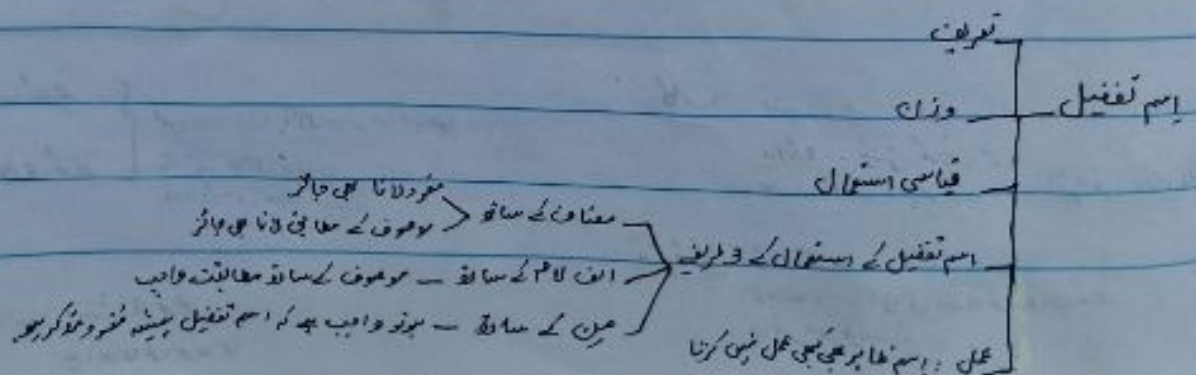 تعریف
اسم تفضیل
وزن
قیاسی استعمال
اسم تفضیل کے استعمال کے 3 طریقے
مضاف کے ساتھ
مفرد لانا بھی جائز
موصوف کے مطابق لانا بھی جائز
الف لام کے ساتھ – موصوف کے ساتھ مطابقت واجب
مِن کے ساتھ – واجب ہے کہ اسم تفضیل ہمیشہ مفرد مذکر ہو
عمل : اسم ظاہر میں کبھی عمل نہیں کرتا